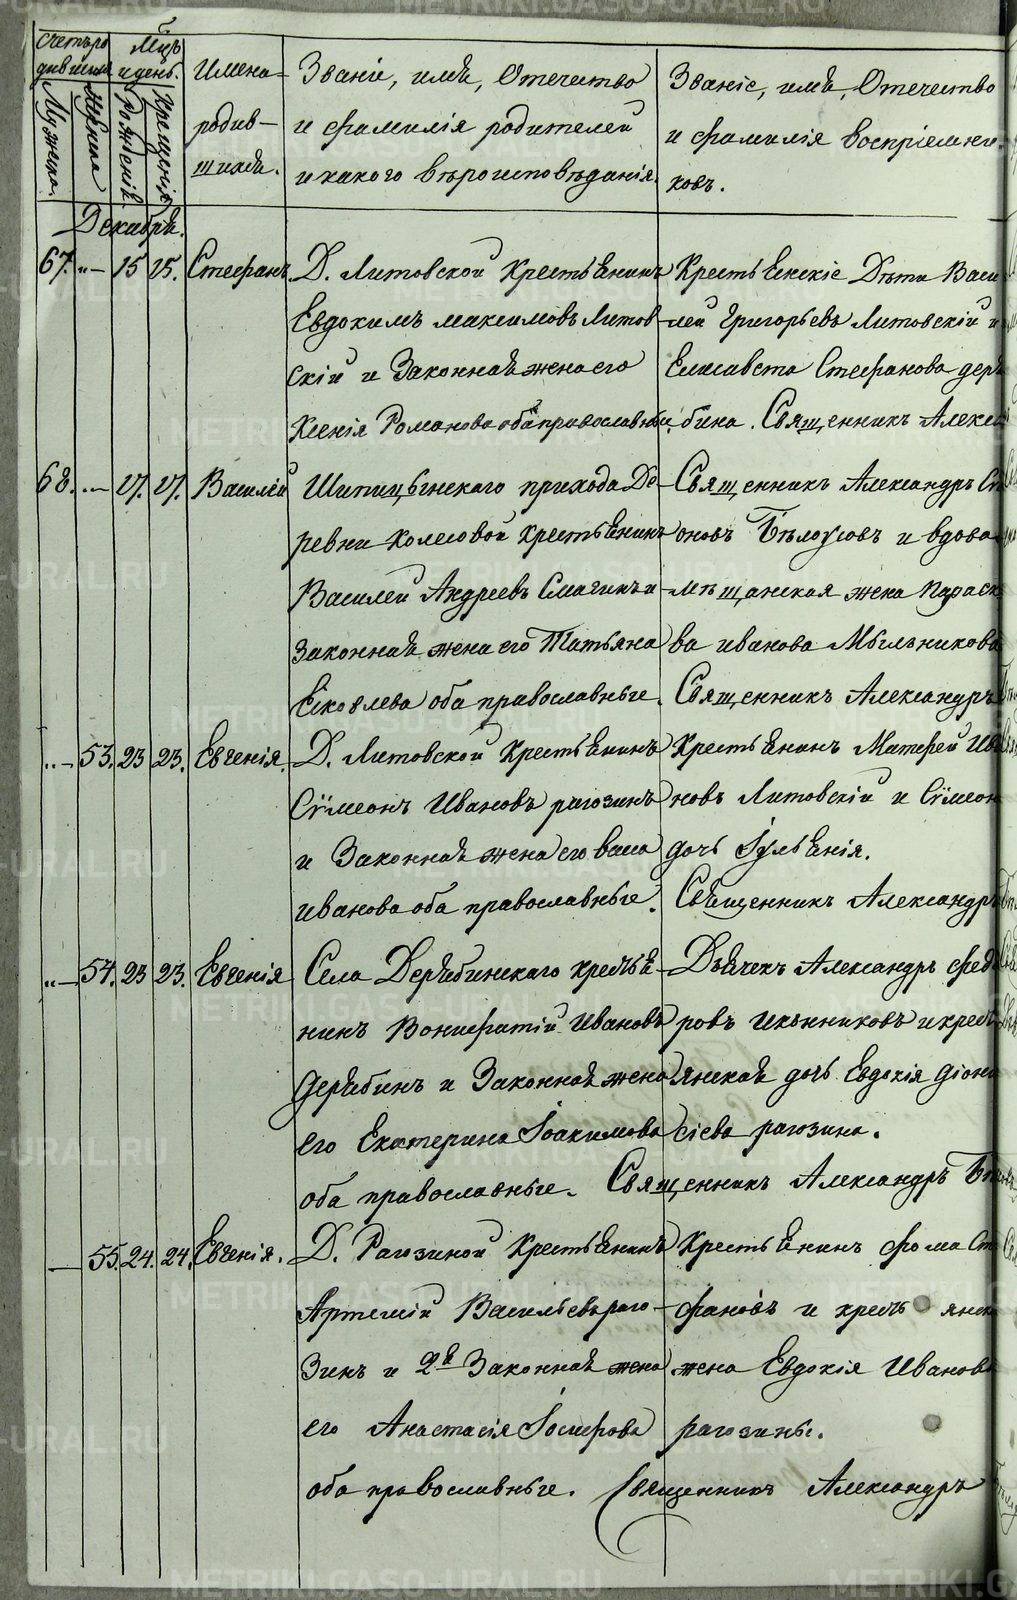 Счетъ родившихся
Мужска.
Женска
Мѣць и день.
Рожденія.
Крещенія
Имена родив-
шихся.
Званіе, имя, Отечество
и фамилія родителей
и какого вѣроисповѣданія.
Званіе, имя, Отечество
и фамилія воспріемни-
ковъ.
Декабря.
67. „— 15 25. Стефанъ.
Д. Литовской Крестьянинъ
Евдокимъ Максимовъ Литов-
скій и Законная жена его
Ксенія Романова оба православныи
Крестьянскіе Дѣти Васи
лей Григорьевъ Литовскій и
Елисавета Стефанова деря
бина. Священникъ Алекса
68. „— 27. 27. Василій
Шипицынскаго прихода Де-
ревни Колесовой Крестьянинъ
Василей Андреевъ Смагинъ и
Законная жена его Татьяна
Яковлева оба православные.
Священникъ Александръ Сп
оновъ Бѣлоусовъ и вдова
мѣщанская жена Параск
ва Иванова Мыльникова
Священникъ Александръ
„— 53. 23 23. Евгенія.
Д. Литовской Крестьянинъ
Сѵмеонъ Ивановъ рагозинъ
и Законная жена его васа
Иванова оба православные.
Крестьянинъ Матфей Ива
новъ Литовскій и Сѵмеон
дочь Іульянія.
Священникъ Александръ
„— 54. 23 23. Евгенія
Села Дерябинскаго крестья-
нинъ Вонифатій Ивановъ
Дерябинъ и Законная жена
его Екатерина Іоакимова
оба православные.
Дьячекъ Александръ Федо
ровъ Иконниковъ и крест
янская дочь Евдокія Діони
сіева рагозина.
Священникъ Александръ Бѣ
— 55. 24. 24. Евгенія.
Д. Рагозиной Крестьянинъ
Артемій Васильевъ раго-
зинъ и 2я Законная жена
его Анастасія Іосифова
оба православные.
Крестьянинъ Фома Сте
фановъ и крестьянска
жена Евдокія Иванова
рагозины.
Священникъ Александръ